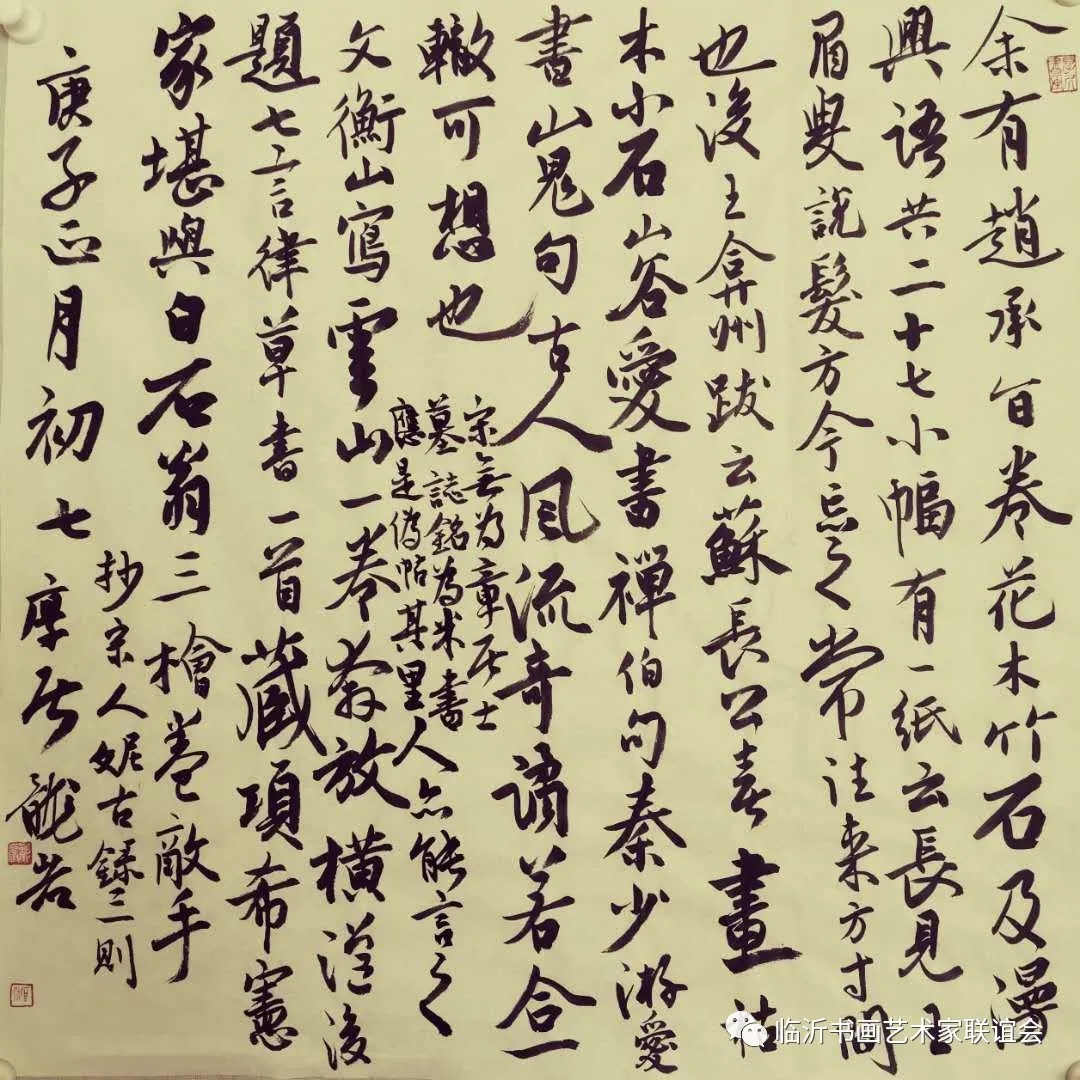 余有趙承旨卷花木竹石及漫
興語共二十七小幅有一紙云長見
眉叟說髮方今忘之常往來方寸間
也後王弇州跋云蘇長公喜畫枯
木小石山谷愛書禪伯句秦少游愛
書山鬼句古人風流奇譎若合一
轍可想也
宋無為章居士
墓誌銘為米書
應是偽帖其里人亦能言之
文衡山寫雲山一卷奔放橫溢後
題七言律草書一首藏項希憲
家堪與白石翁三檜卷敵手
抄宋人妮古錄三則
庚子正月初七 龍岩
临沂书画艺术家联谊会